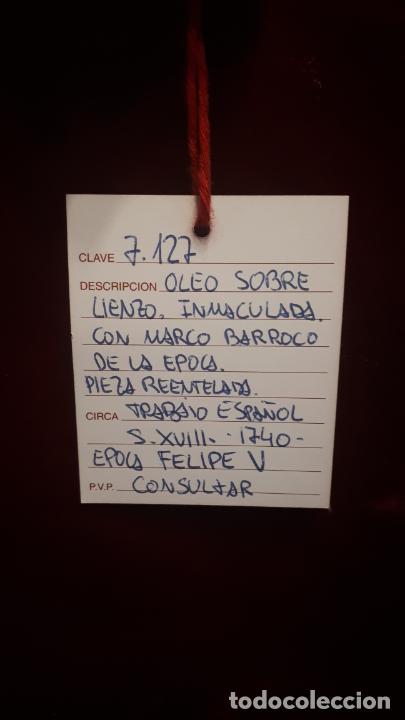 CLAVE 7.127
DESCRIPCION OLEO SOBRE
LIENZO, INMACULADA.
CON MARCO BARROCO
DE LA EPOCA.
PIEZA REENTELADA.
CIRCA TRABAJO ESPAÑOL
S. XVIII. - 1740 -
EPOCA FELIPE V
P.V.P. CONSULTAR
todocoleccion.net